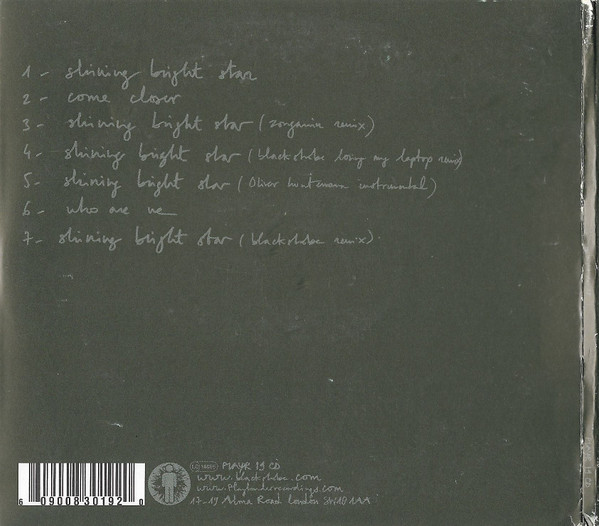 1 - shining bright star
2 - come closer
3 - shining bright star (zongamin remix)
4 - shining bright star (blackstrobe losing my laptop remix)
5 - shining bright star (Oliver huntemann instrumental)
6 - who are we
7 - shining bright star (blackstrobe remix)
LC PLAYR 19 CD
www.blackstrobe.com
www.playlouderecordings.com
17-19 Alma Road London SW18 1AA
6 09008 30192 0